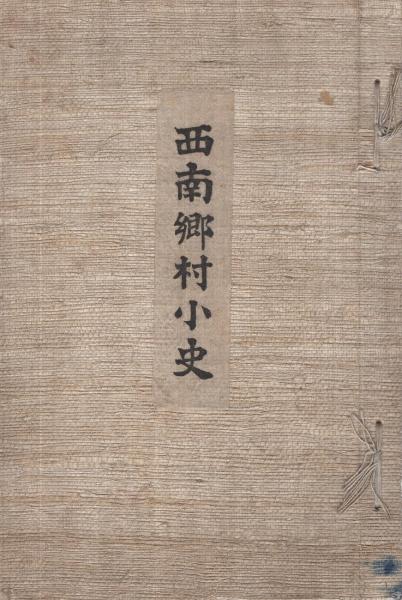 西南鄉村小史